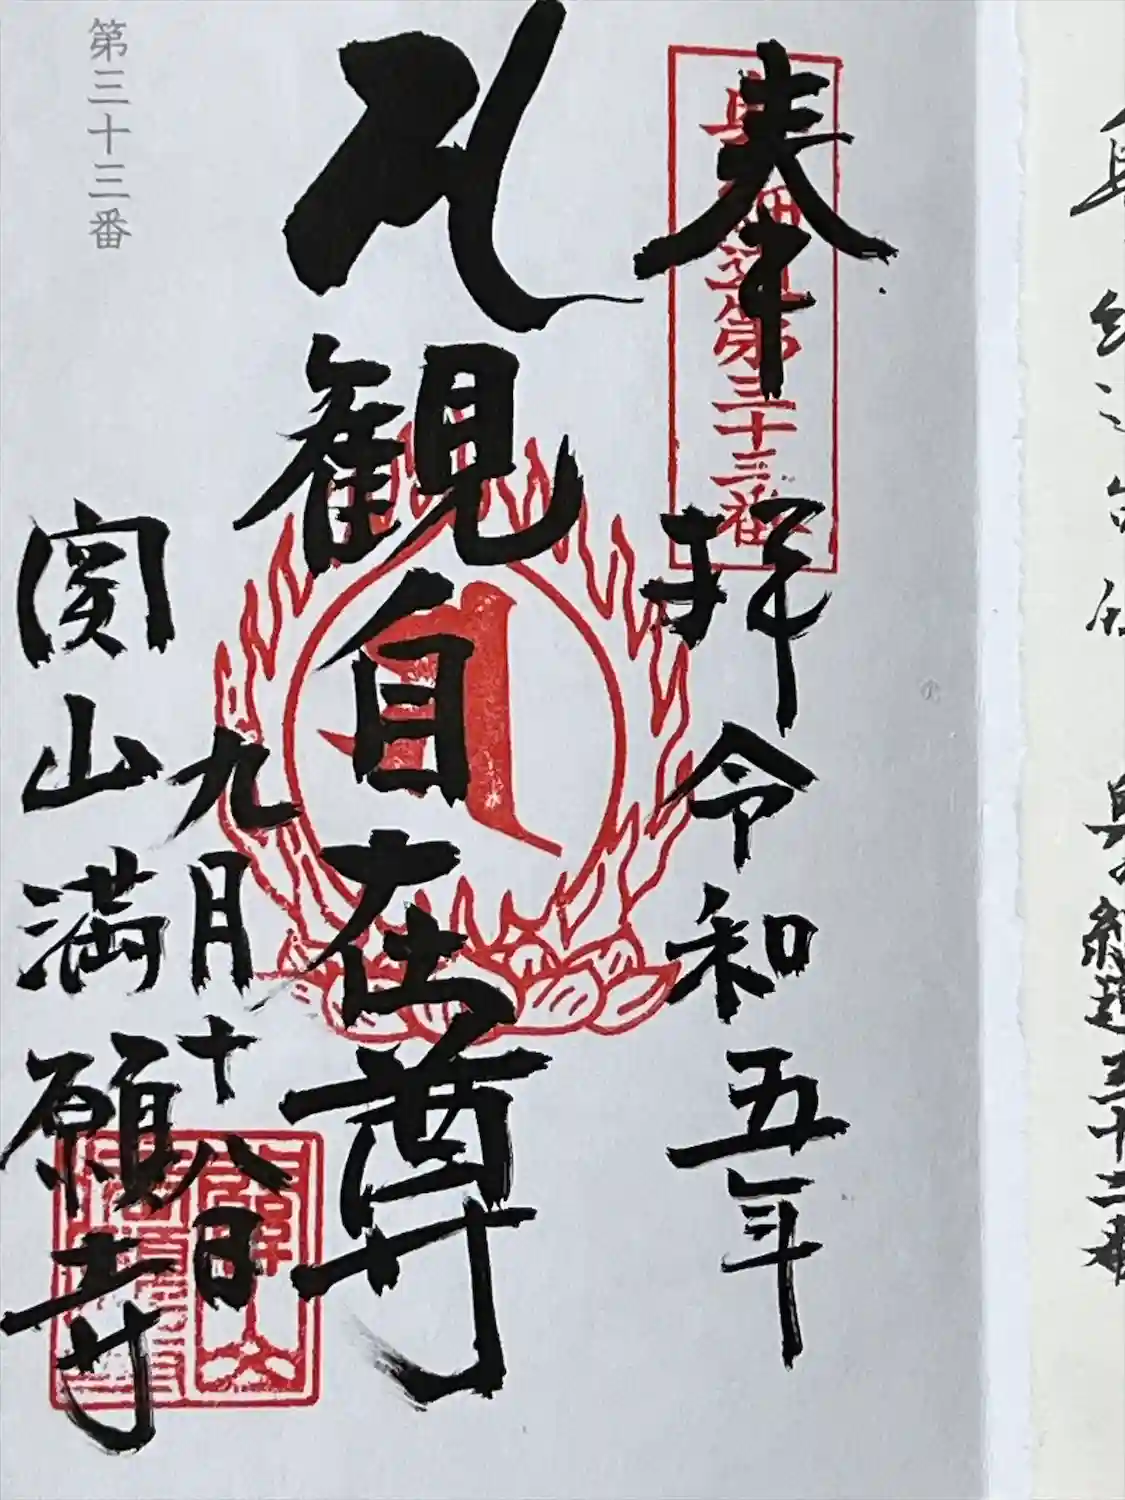 奉拝
令和五年
奥細道第三十三番
観自在尊
九月十八日
関山満願寺
第三十三番